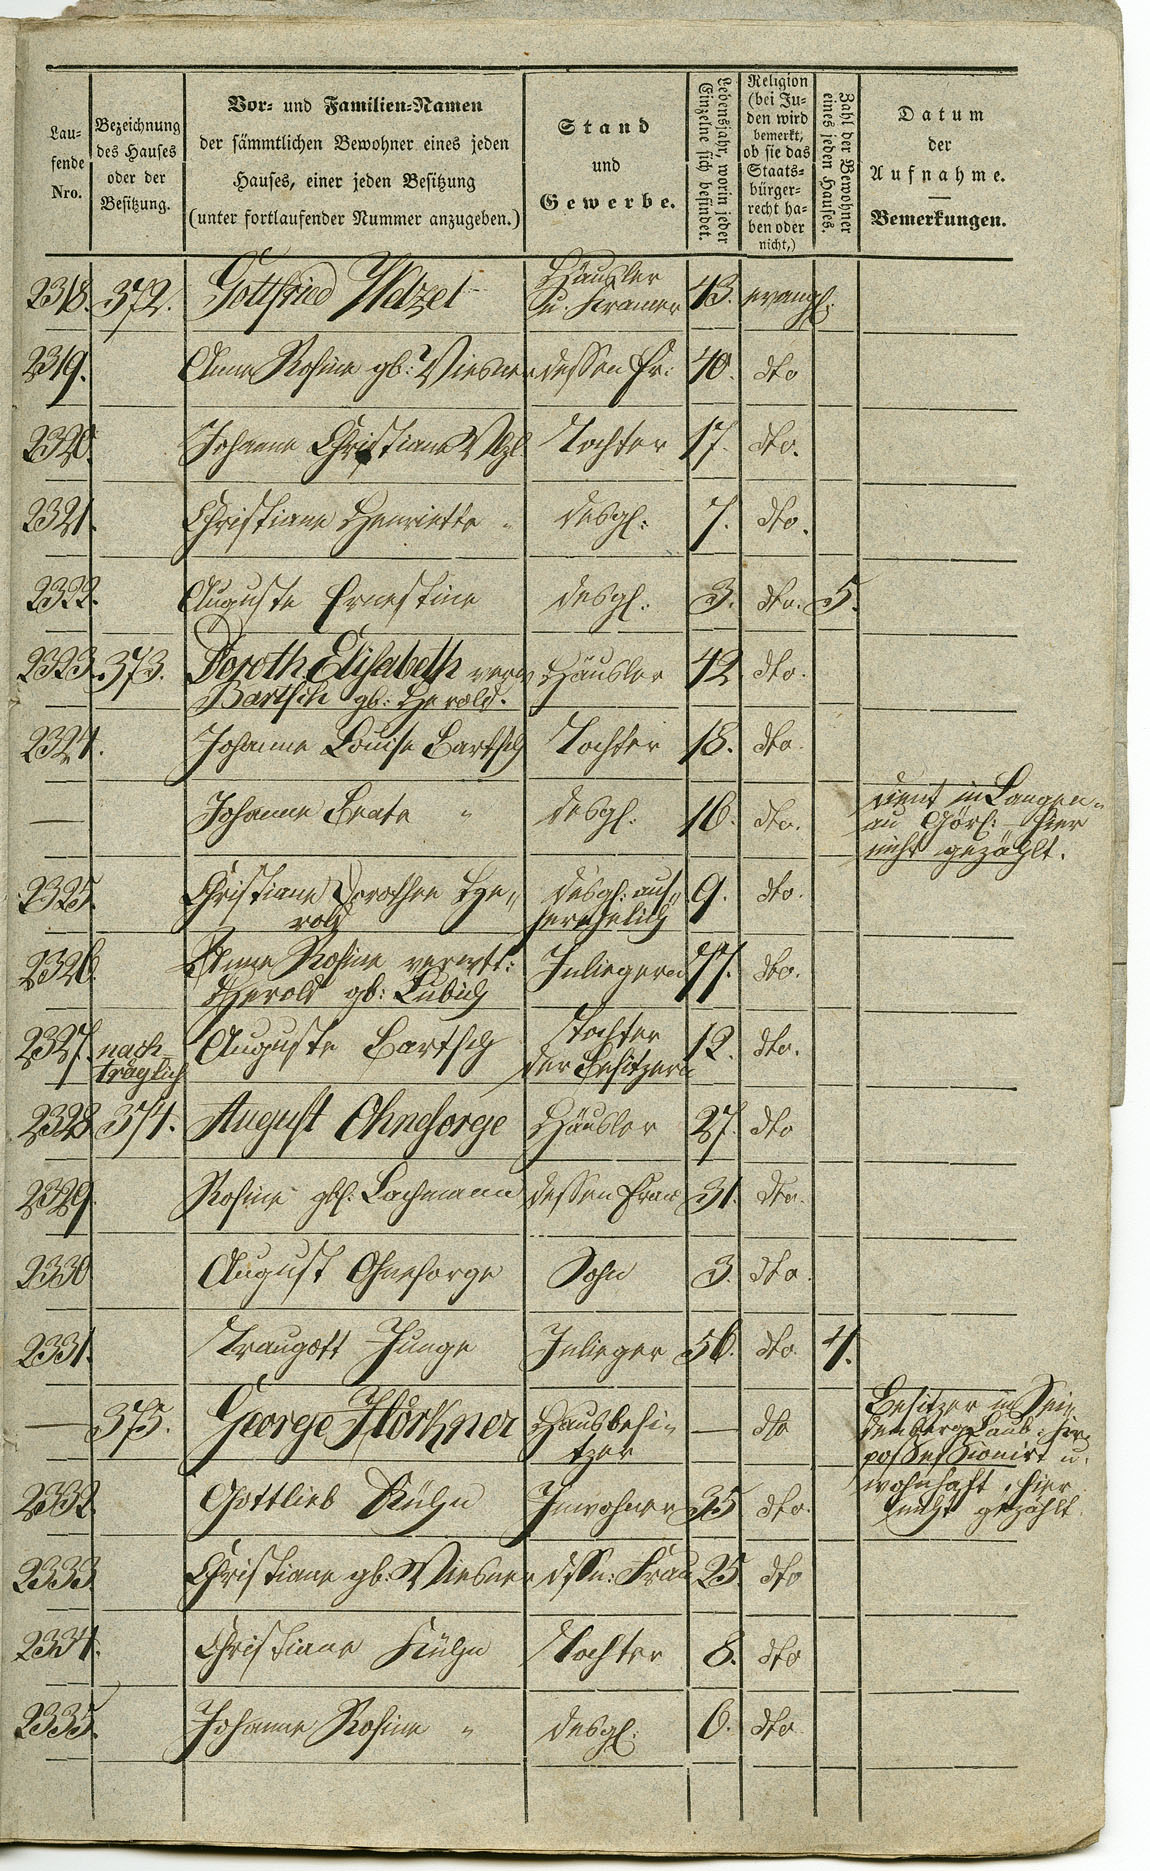 Lau-
fende
Nro.
Bezeichnung
des Hauses
oder der
Besitzung.
Vor- und Familien-Namen
der sämmtlichen Bewohner eines jeden
Hauses, einer jeden Besitzung
(unter fortlaufender Nummer anzugeben.)
Stand
und
Gewerbe.
Lebensjahr, worin jeder
Einzelne sich befindet.
Religion
(bei Ju-
den wird
bemerkt,
ob sie das
Staats-
bürger-
recht ha-
ben oder
nicht,)
Zahl der Bewohner
eines jeden Hauses.
Datum
der
Aufnahme.
Bemerkungen.
2318. 372. Gottfried Wetzel Häusler
u. Kramer 43. evangl.
2319. Anne Rosine gb: Wiesner dessen Fr: 40. dto
2320. Johanne Christiane Wzl Tochter 17. dto.
2321. Christiane Henriette " desgl: 7. dto.
2322. Auguste Ernestine desgl. 3. dto. 5.
2323. 373. Doroth. Elisabeth verw
Bartsch gb: Herold. Häusler 42 dto.
2324. Johanne Louise Bartsch Tochter 18. dto.
— Johanne Beate " desgl. 16. dto. dient in Langen-
au Görl: hier
nicht gezählt.
2325. Christiane Dorothee He-
rold desgl: aus-
serehelich 9. dto.
2326. Anne Rosine verwtt:
Herold gb: Lubich Inliegerin 77. dto.
2327. nach-
träglich Auguste Bartsch Tochter
der Besitzerin 12. dto.
2328. 374. August Ohnesorge Häusler 27. dto
2329. Rosine gb: Lachmann dessen Frau 31. dto.
2330 August Ohnesorge Sohn 3. dto.
2331. Traugott Junge Inlieger 56. dto. 4.
— 375. George Flörkner Hausbesi-
tzer — dto Besitzer in Sei-
denberg Laub:
possessionirt u.
wohnhaft, hier
nicht gezählt.
2332. Gottlieb Kühn Inwohner 35 dto.
2333 Christiane gb: Wiesner dssn: Frau 25. dto
2334. Christiane Kühn Tochter 8. dto
2335. Johanne Rosine " desgl. 6. dto